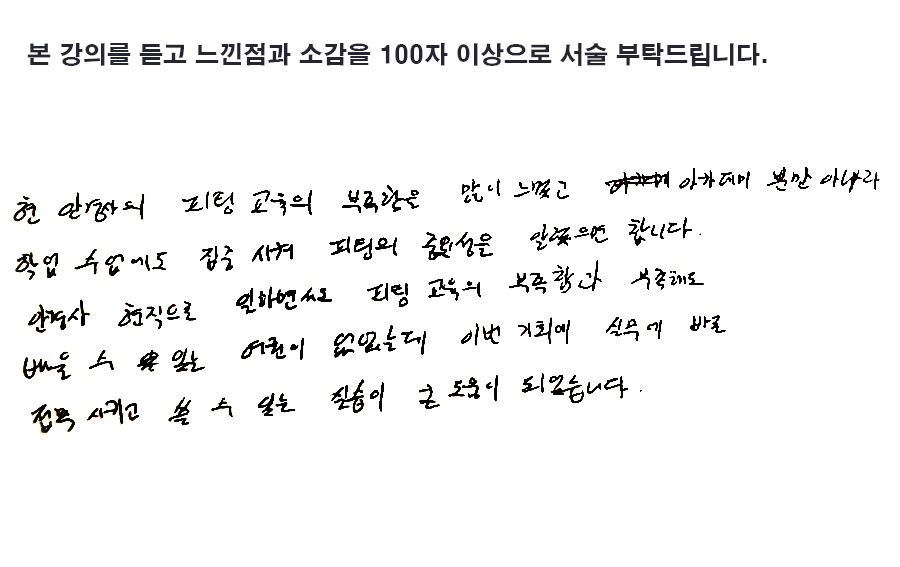 본 강의를 듣고 느낀점과 소감을 100자 이상으로 서술 부탁드립니다.
현 안경사의 피팅 교육의 부족함을 많이 느꼈고 아카데미 뿐만 아니라
학업 수업에도 집중 시켜 피팅의 중요성을 알렸으면 합니다.
안경사 현직으로 일하면서도 피팅 교육의 부족함과 부족해도
배울 수 있는 여건이 없었는데 이번 기회에 실무에 바로
접목 시키고 쓸 수 있는 실습이 큰 도움이 되었습니다.